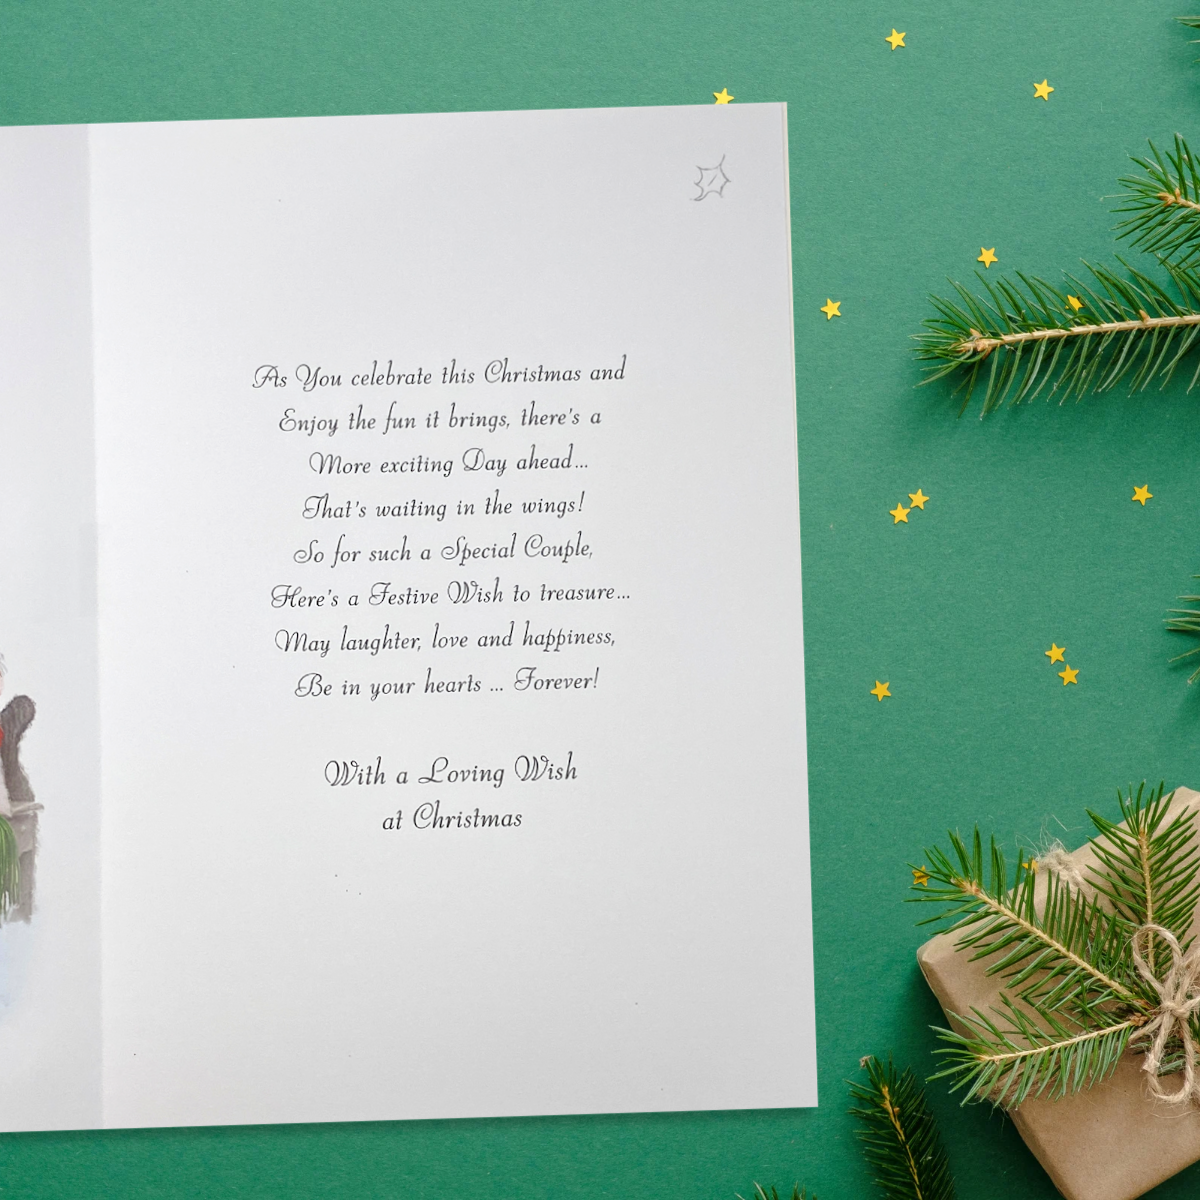 As You celebrate this Christmas and
Enjoy the fun it brings, there's a
More exciting Day ahead...
That's waiting in the wings!
So for such a Special Couple,
Here's a Festive Wish to treasure...
May laughter, love and happiness,
Be in your hearts ... Forever!
With a Loving Wish
at Christmas